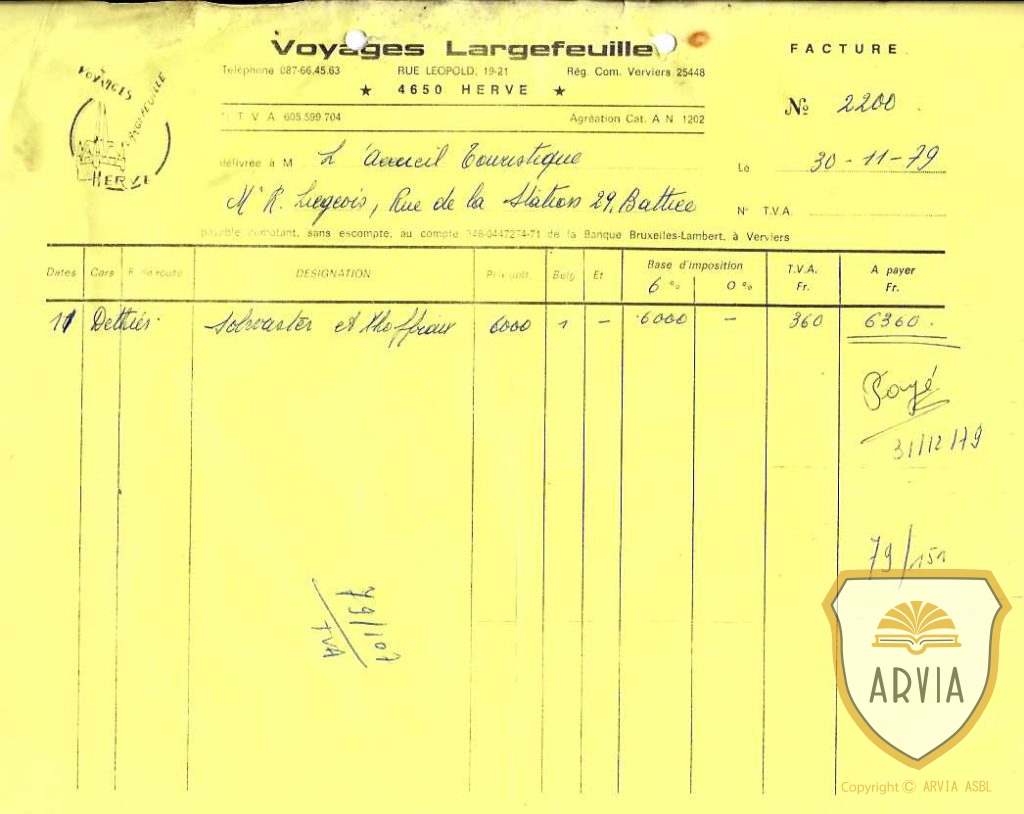 Voyages Largefeuille
FACTURE
Téléphone 087-66.45.63 RUE LEOPOLD, 19-21 Rég. Com. Verviers 25448
★ 4650 HERVE ★
T V A 605.599.704 Agréation Cat. A N. 1202
VOYAGES LARGEFEUILLE
HERVE
№ 2200
délivrée à M L'Accueil Touristique
Le 30-11-79
Mr R. Liegeois, Rue de la Station 29, Battice
N° T.V.A.
payable comptant, sans escompte, au compte 348-0447274-71 de la Banque Bruxelles-Lambert, à Verviers
Dates Cars F. de route DESIGNATION Prix unit. Belg Et Base d'imposition T.V.A. Fr. A payer Fr.
6 % 0 %
11 et 6000 1 - 6000 - 360 6360.
Payé
31/12/79
79/151
79/107
TVA
ARVIA
Copyright © ARVIA ASBL